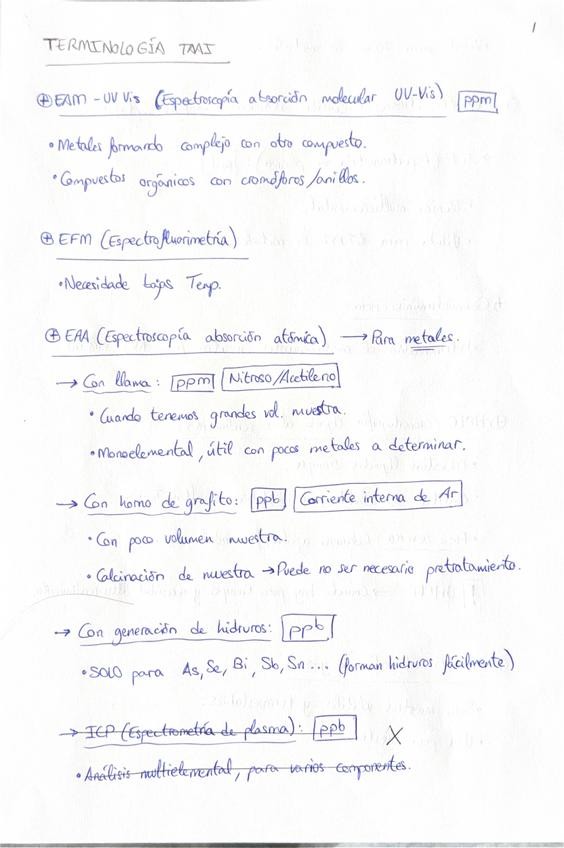 1
TERMINOLOGÍA TAAI
⊕ EAM - UV Vis (Espectroscopía absorción molecular UV-Vis) ppm
• Metales formando complejo con otro compuesto.
• Compuestos orgánicos con cromóforos/anillos.
⊕ EFM (Espectrofluorimetría)
• Necesidade bajas Temp.
⊕ EAA (Espectroscopía absorción atómica) → Para metales.
→ Con llama: ppm Nitroso/Acetileno
• Cuando tenemos grandes vol. muestra.
• Monoelemental, útil con pocos metales a determinar.
→ Con horno de grafito: ppb Corriente interna de Ar
• Con poco volumen muestra.
• Calcinación de muestra → Puede no ser necesario pretratamiento.
→ Con generación de hidruros: ppb
• SOLO para As, Se, Bi, Sb, Sn... (forman hidruros fácilmente)
→ ICP (Espectrometría de plasma): ppb X
• Análisis multielemental, para varios componentes.